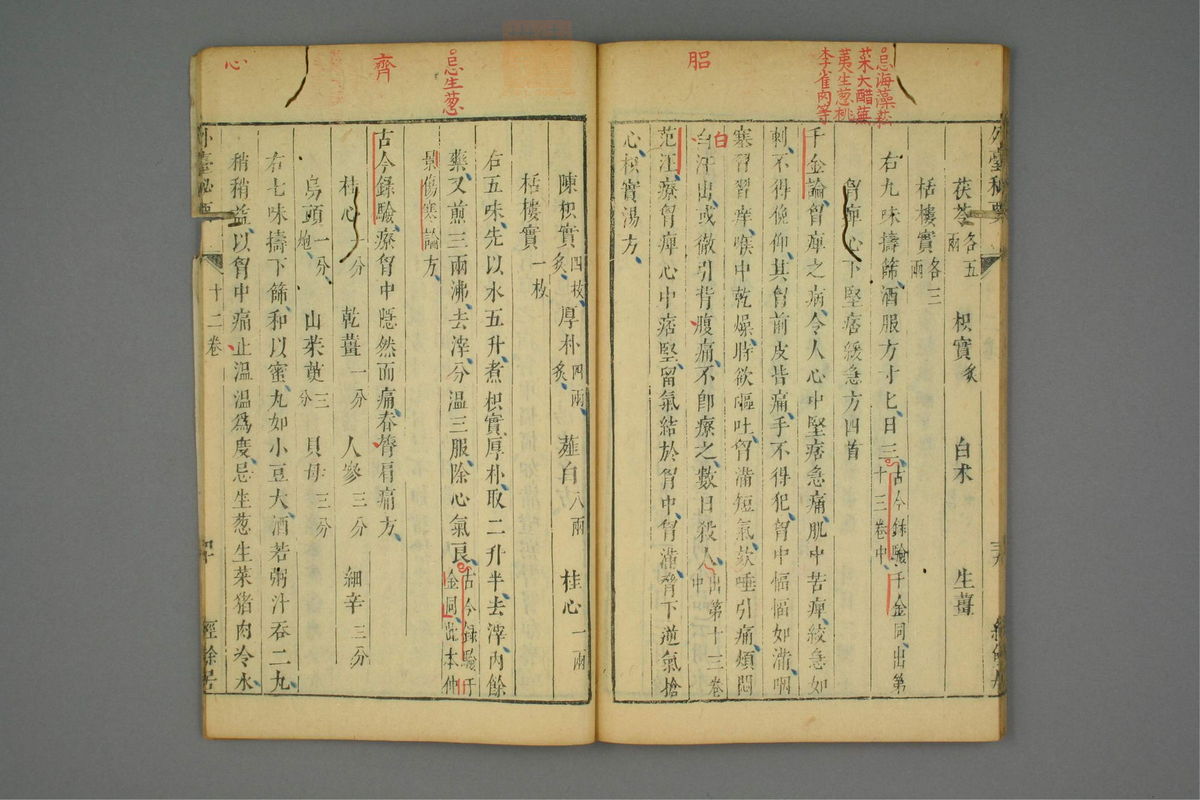 忌海藻菘
菜大醋蕪
荑生葱桃
李雀肉等
䏚
茯苓各五兩 枳實炙 白朮 生薑
栝樓實各三兩
右九味擣篩酒服方寸匕日三古今録驗千金同出第十三卷中
胷痺心下堅痞緩急方四首
千金論胷痺之病令人心中堅痞急痛肌中苦痺絞急如
刺不得俛仰其胷前皮皆痛手不得犯胷中愊愊如滿咽
塞習習痒喉中乾燥時欲嘔吐胷滿短氣欬唾引痛煩悶
白汗出或徹引背腹痛不卽療之數日殺人出第十三卷中
白
范汪療胷痺心中痞堅留氣結於胷中胷滿脅下逆氣搶
心枳實湯方
忌生葱
齊
心
陳枳實四枚炙 厚朴四兩炙 薤白八兩 桂心一兩
栝樓實一枚
右五味先以水五升煮枳實厚朴取二升半去滓内餘
藥又煎三兩沸去滓分溫三服除心氣良古今録驗千金同此本仲
景傷寒論方
古今録驗療胷中隱然而痛春膂肩痛方
桂心一分 乾薑一分 人參三分 細辛三分
烏頭一分炮 山茱萸三分 貝母三分
右七味擣下篩和以蜜丸如小豆大酒若粥汁吞二丸
稍稍益以胷中痛止溫溫爲度忌生葱生菜猪肉冷水
外臺秘要
十二卷
經餘居